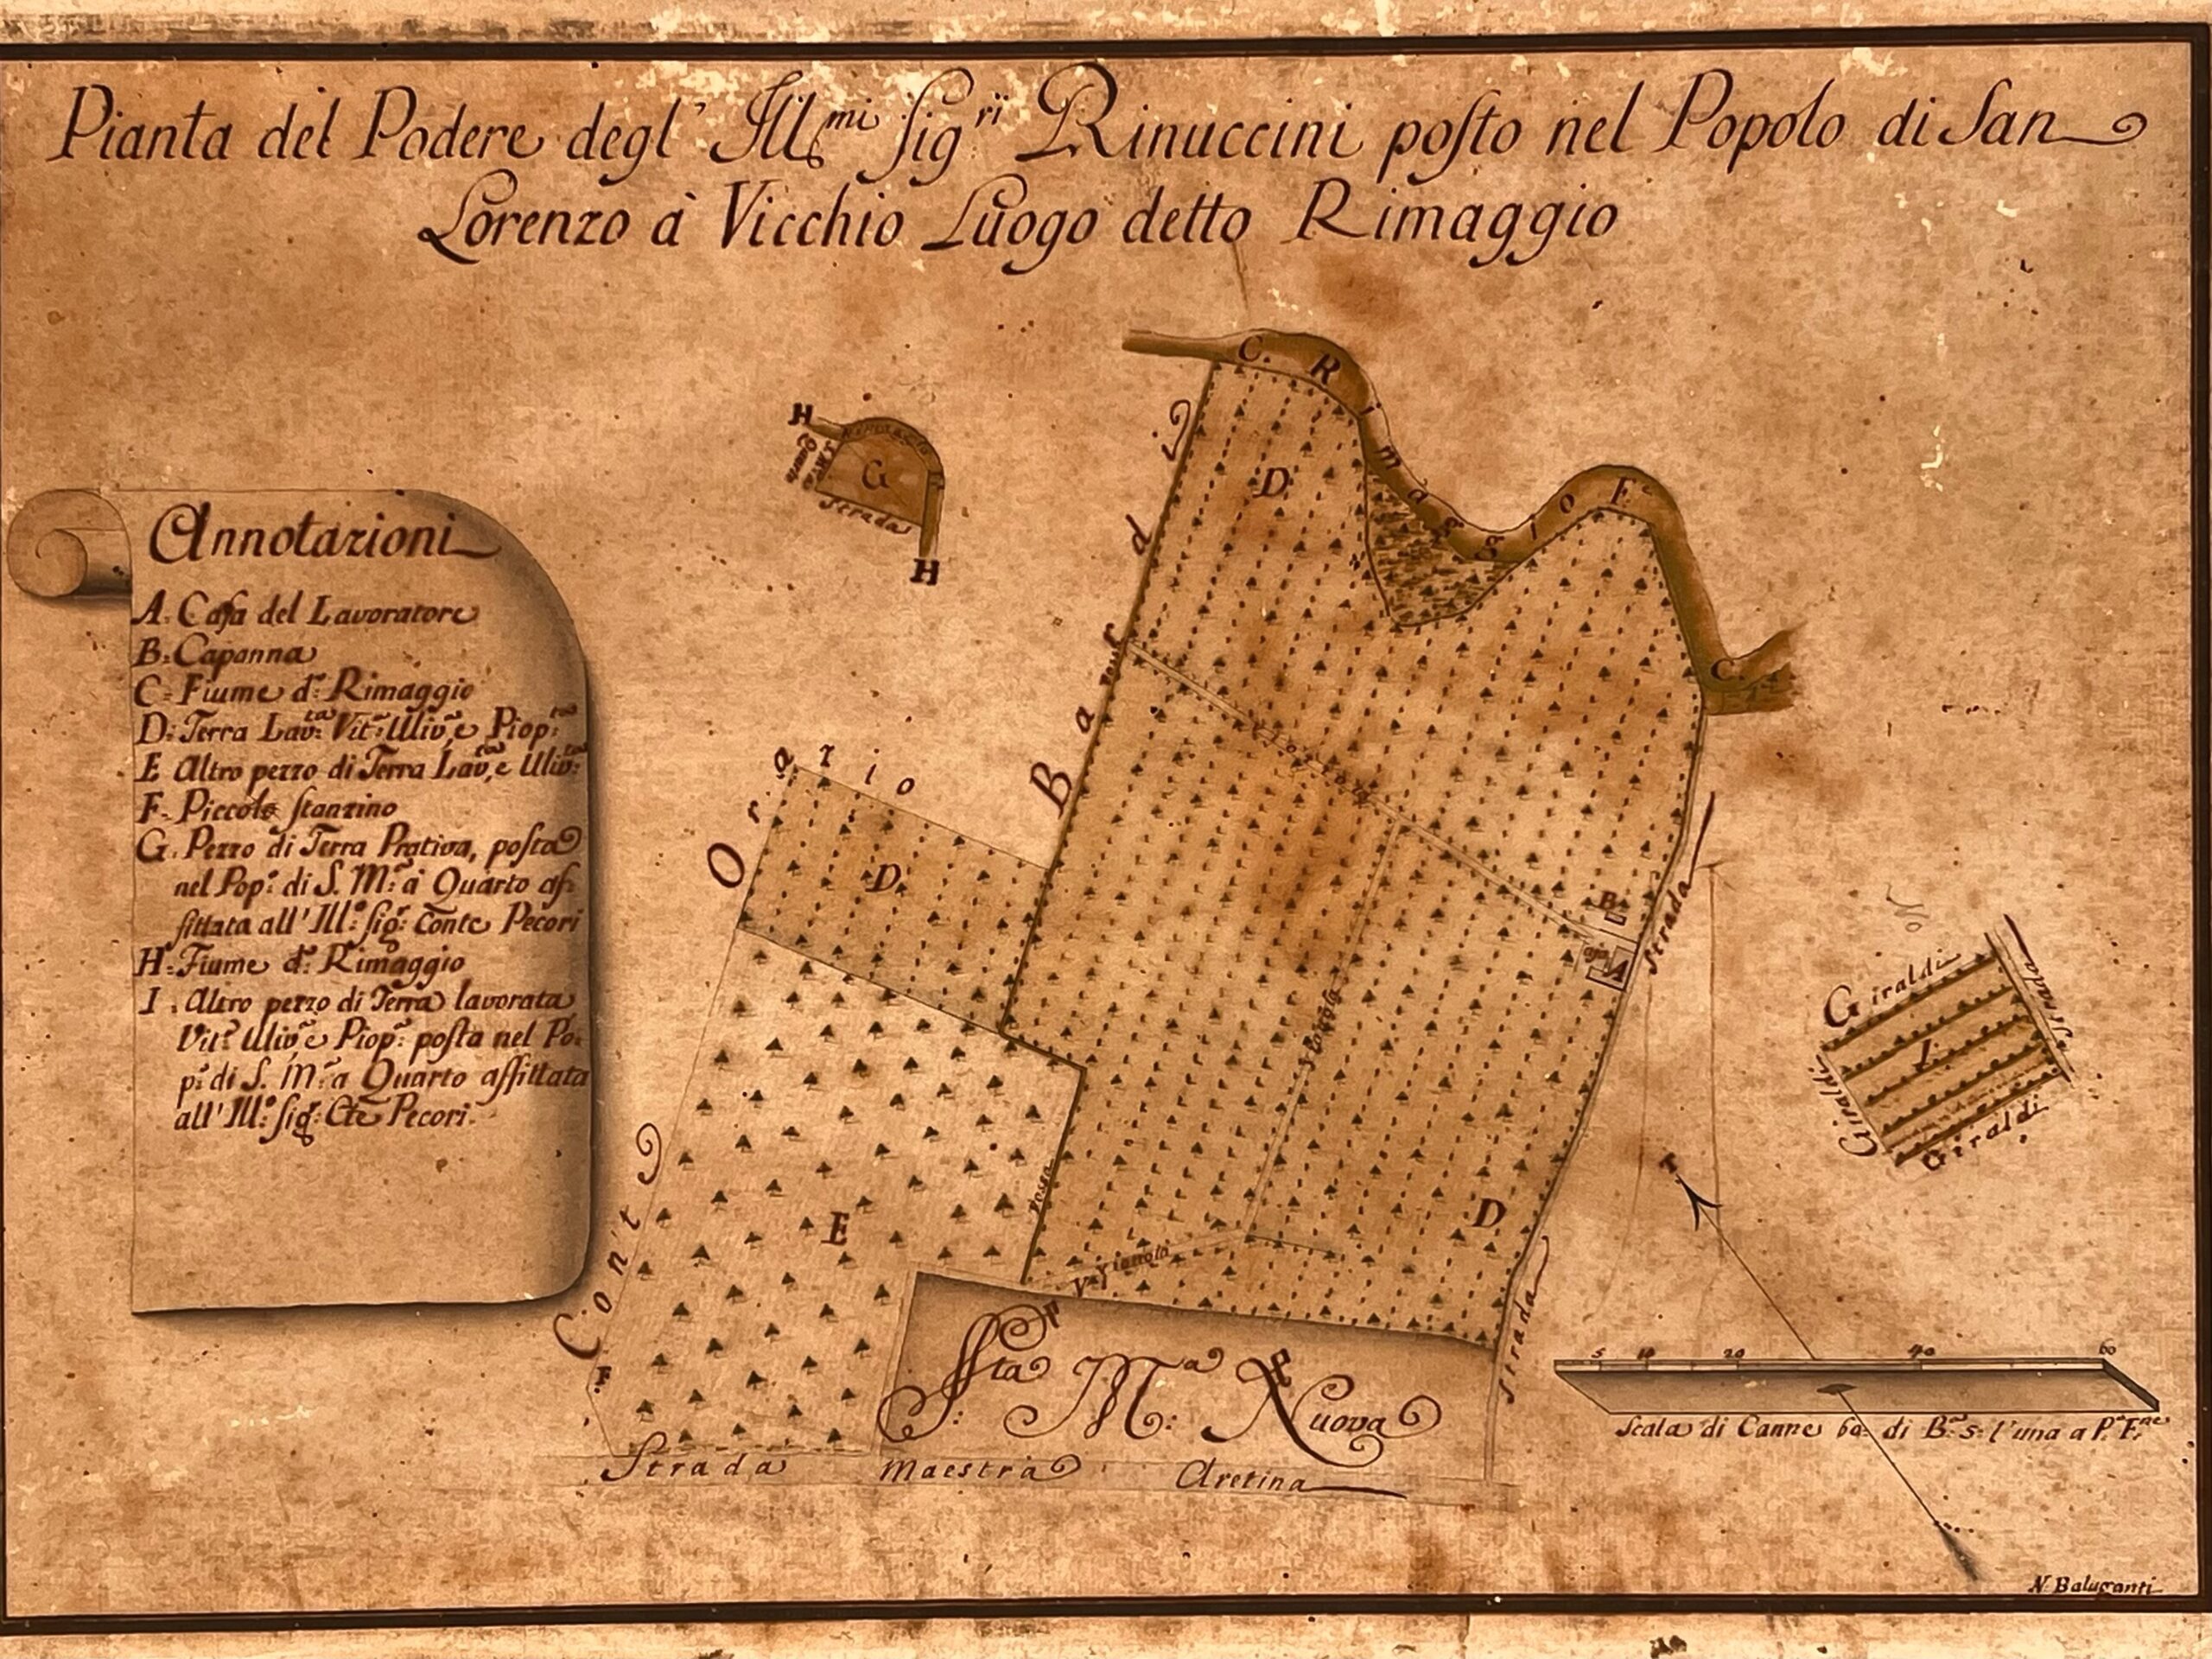 Pianta del Podere degl' Ill.mi Sig.ri Rinuccini posto nel Popolo di San
Lorenzo à Vicchio Luogo detto Rimaggio
C. Rimaggio F.e
C.
H
G
Strada
H
Bardi
D
Annotazioni
A. Casa del Lavoratore
B. Capanna
C. Fiume d.o Rimaggio
D. Terra Lav.ta Vit.a Uliv.a e Piop.ta
E Altro pezzo di Terra Lav.ta, e Uliv.ta
F. Piccolo Stanzino
G. Pezzo di Terra Prativa, posta
nel Pop.o di S. M.a à Quarto af=
fittata all' Ill.o Sig.r Conte Pecori
H. Fiume d.o Rimaggio
I. Altro pezzo di Terra lavorata
Vit.a Uliv.a e Piop.a posta nel Po=
p.o di S. M.a a Quarto affittata
all' Ill.o Sig.r Cte Pecori.
Orazio
D
B
A
Strada
Viottola
Giraldi
Strada
I
Giraldi
Giraldi
Conti
E
Fossa
D
Viottola
F
Strada
S.ta M.a Nuova
Strada Maestra Aretina
5 10 20 40 60
Scala di Canne 60 di B.a 5 l'una a P. F.ne
N. Baluganti